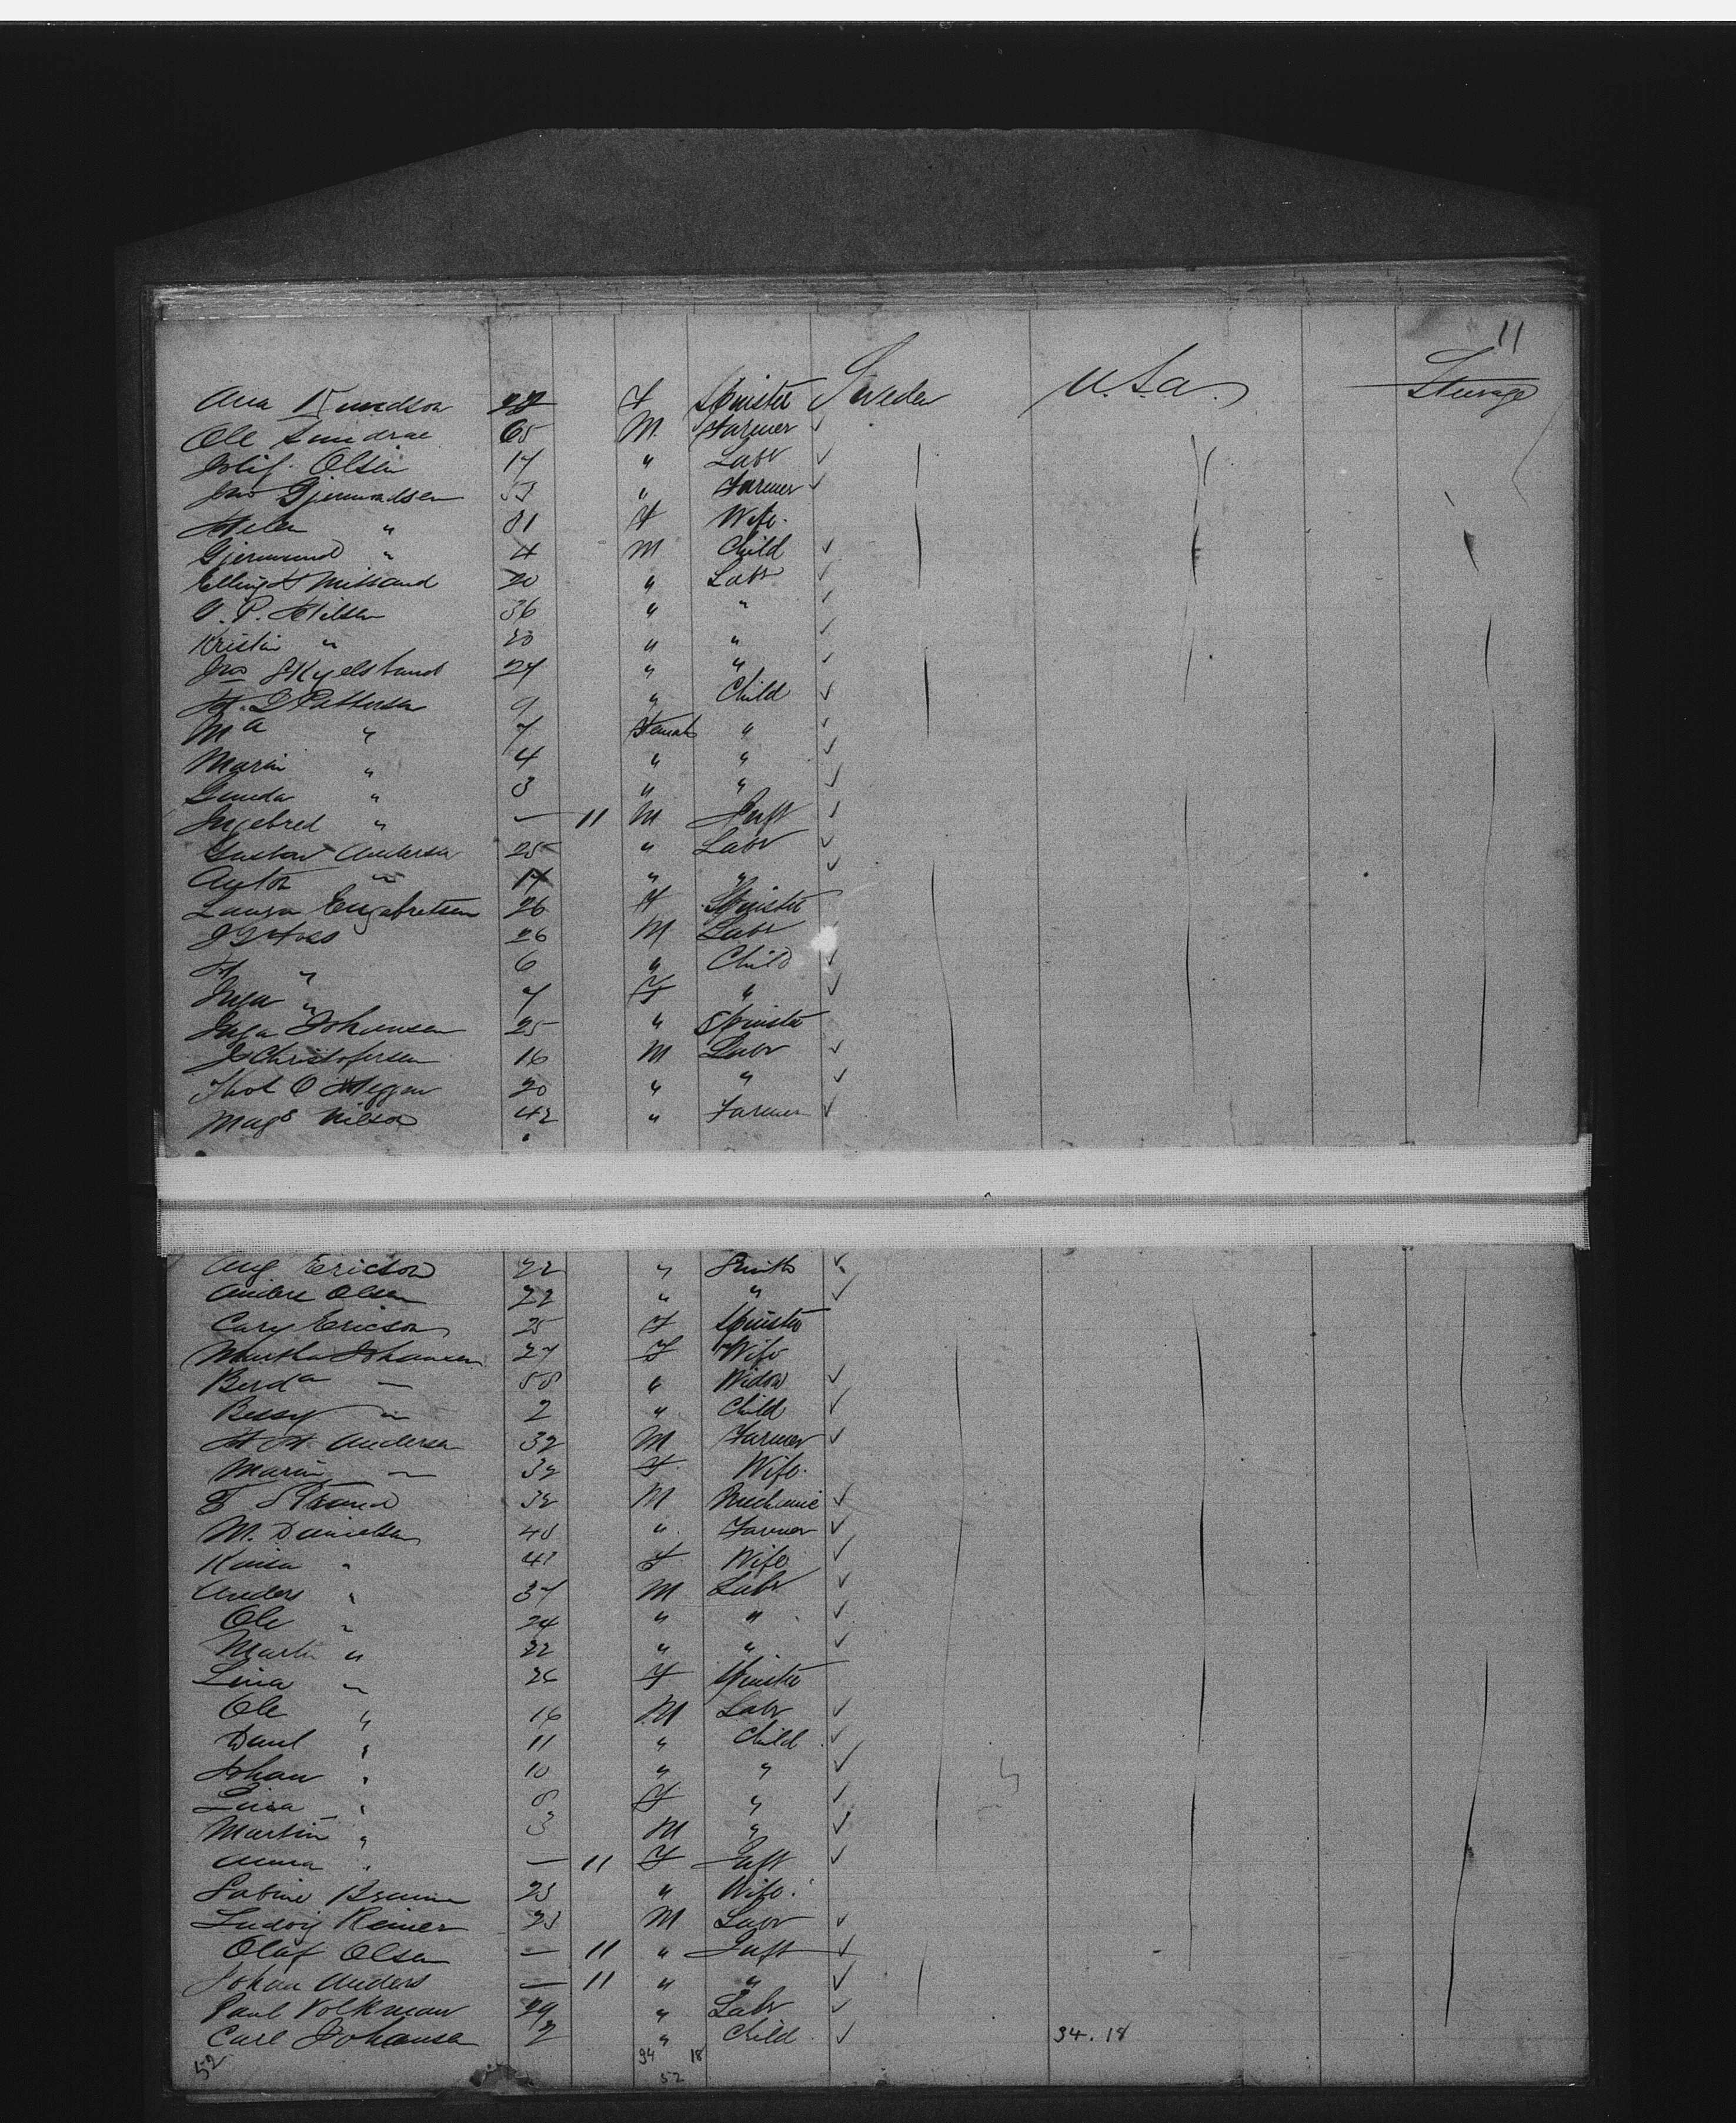 11
Ana Knudson 22 F Spinster Sweden U.S.a. Steerage
Ole 65 M. Farmer ✓
Olsen 17 " Labr ✓
Jno Gjermundsen 53 " Farmer ✓
Helen " 51 F Wife.
Gjermund " 4 M Child ✓
20 " Labr ✓
O. P. Nilsen 36 " " ✓
Kristin " 20 " " ✓
Jno 27 " " ✓
Pettersen 9 " Child ✓
Ma " 7 Female " ✓
Marin " 4 " " ✓
Gunda " 3 " " ✓
Ingebred " — 11 M Inft ✓
Gustav Andersen 25 " Labr ✓
Anton " 17 " " ✓
Laura Engebretsen 26 F Spinster
26 M Labr
" 6 " Child ✓
Inga " 7 F " ✓
Inga Johansen 25 " Spinster
J Christofersen 16 M Labr ✓
Thol O Heggen 20 " " ✓
Mags Nilson 42 " Farmer ✓
Aug Ericson 22 " Smith ✓
Anders Olsen 22 " " ✓
Cary Ericson 25 F Spinster
Martha Johansen 27 F Wife
Berda — 58 " Widow ✓
Bessy " 2 " Child ✓
H H Andersen 32 M Farmer ✓
Marin — 32 F. Wife.
32 M Mechanic ✓
M. Danielsen 48 " Farmer ✓
Kaisa " 41 F Wife ✓
Anders " 37 M Labr ✓
Ole " 24 " " ✓
Martin " 22 " " ✓
Lina " 26 F Spinster
Ole " 16 M Labr ✓
Danl " 11 " Child ✓
Johan " 10 " " ✓
Lisa " 8 F " ✓
Martin " 3 M " ✓
Anna " — 11 F Inft ✓
Sabine Braun 23 " Wife.
Ludvig Reiner 23 M Labr ✓
Olaf Olsen — 11 " Inft ✓
Johan Anders — 11 " " ✓
Paul Volkman 29 " Labr ✓
Carl Johansen 2 " Child ✓ 34.18
52 34 18
52